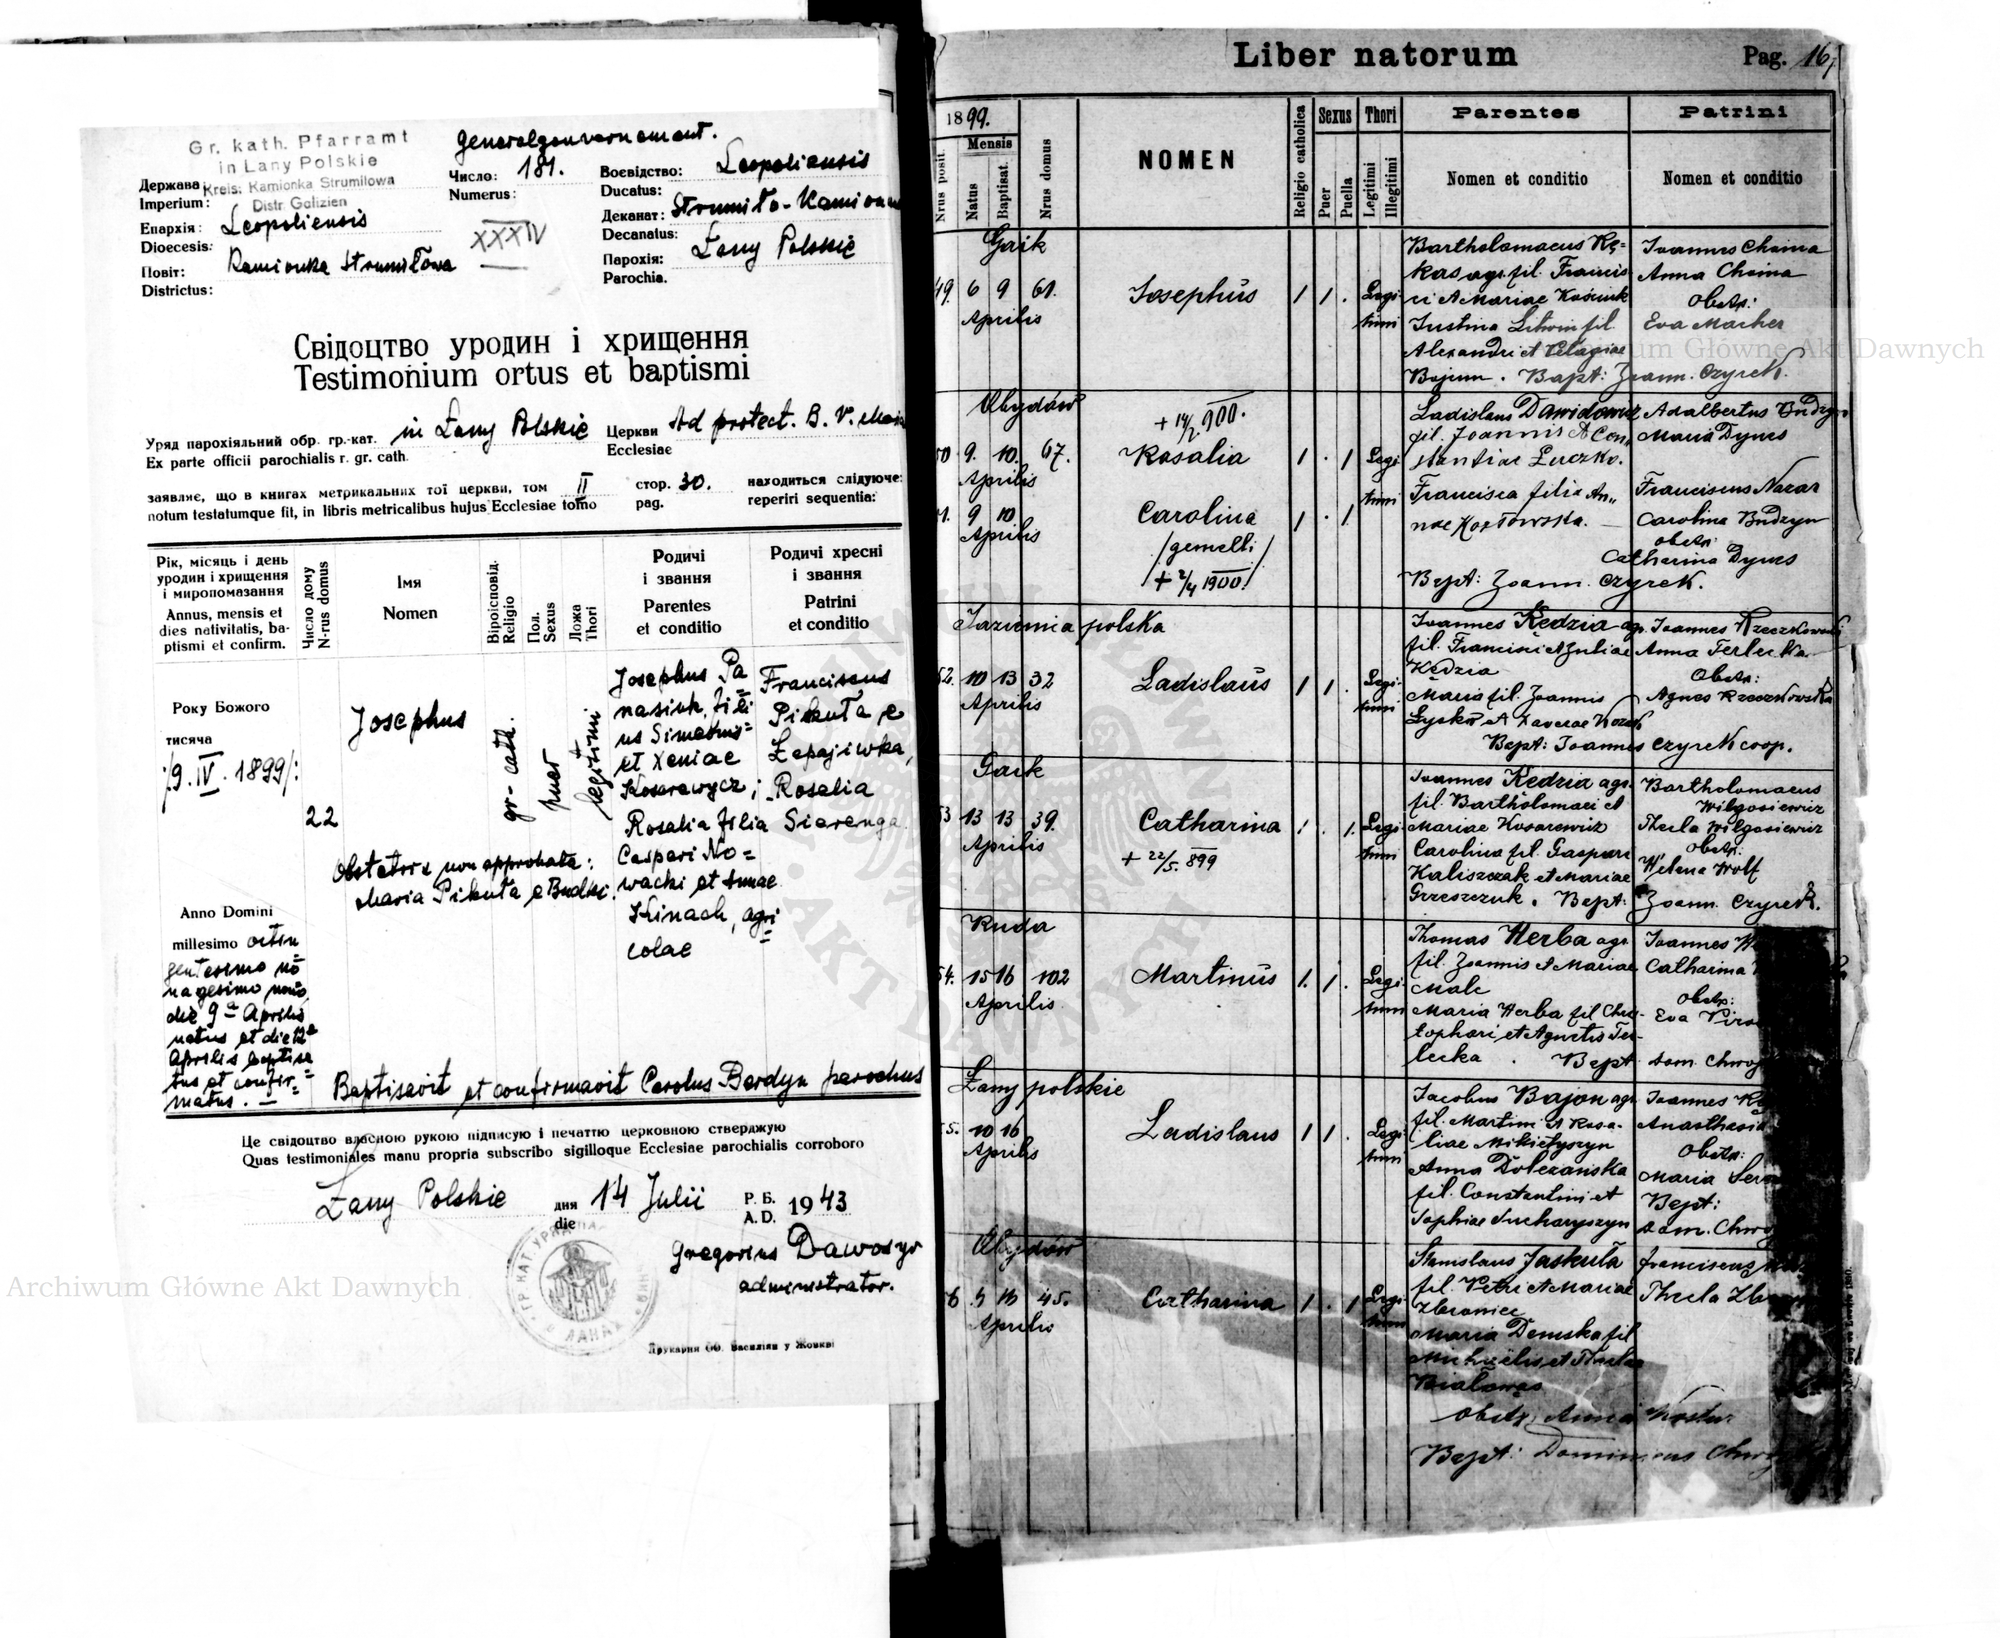 Gr. kath. Pfarramt
in Lany Polskie
Kreis: Kamionka Strumilowa
Distr. Galizien
Generalgouvernement.
Держава
Imperium:
Число: 181.
Numerus:
XXXIV
Воєвідство: Leopoliensis
Ducatus:
Епархія: Leopoliensis
Dioecesis:
Деканат: Strumiło-Kamionka
Decanatus:
Повіт: Kamionka Strumiłowa
Districtus:
Парохія: Łany Polskie
Parochia.
Свідоцтво уродин і хрищення
Testimonium ortus et baptismi
Уряд парохіяльний обр. гр.-кат. in Łany Polskie Церкви Ad protect. B. V. Mariae
Ex parte officii parochialis r. gr. cath. Ecclesiae
заявляє, що в книгах метрикальних тої церкви, том II стор. 30. находиться слідуюче:
notum testatumque fit, in libris metricalibus hujus Ecclesiae tomo pag. reperiri sequentia:
Рік, місяць і день
уродин і хрищення
і миропомазання
Annus, mensis et
dies nativitatis, ba-
ptismi et confirm.
Число дому
N-rus domus
Імя
Nomen
Віроісповід.
Religio
Пол.
Sexus
Ложа
Thori
Родичі
і звання
Parentes
et conditio
Родичі хресні
і звання
Patrini
et conditio
Року Божого
тисяча
/9. IV. 1899/:
22
Josephus
gr-cath.
puer
legitimi
Josephus Pa
nasiuk, fili
us Simeonis
et Xeniae
Kosarewycz;
Rosalia filia
Caspari No=
wacki et Annae
Kinach, agri
colae
Franciscus
Pikuła, e
Łapajiwka,
Rosalia
Siarenga
Obstetrix non approbata:
Maria Pikuła e Budki.
Anno Domini
millesimo octin
gentesimo no
nagesimo nono
die 9na Aprilis
natus et die 12a
Aprilis baptisa
tus et confir=
matus. —
Baptisavit et confirmavit Carolus Bardyn parochus
Це свідоцтво власною рукою підписую і печаттю церковною стверджую
Quas testimoniales manu propria subscribo sigilloque Ecclesiae parochialis corroboro
Łany Polskie дня 14 Julii Р. Б. 1943
die A. D.
Gregorius Dawosyr
administrator.
Друкарня ОО. Василіян у Жовкві
Archiwum Główne Akt Dawnych
Liber natorum
Pag. 167
1899.
Nrus posit.
Mensis
Natus
Baptisat.
Nrus domus
NOMEN
Religio catholica
Sexus
Puer
Puella
Thori
Legitimi
Illegitimi
Parentes
Nomen et conditio
Patrini
Nomen et conditio
Gaik
49. 6 9 61. Josephus 1 1 . Legi
Aprilis timi
Bartholomaeus Rę=
kas agr. fil. Francis
ci et Mariae Kościuk
Justina Litwin fil.
Alexandri et Pelagiae
Bojum. Bapt: Joann. Czyrek.
Joannes Choina
Anna Choina
Obstr:
Eva Macher
Archiwum Główne Akt Dawnych
Obydów
+ 14/2. 900.
50 9. 10. 67. Rosalia 1 . 1 Legi
Aprilis timi
51. 9 10 Carolina 1 . 1
Aprilis
/gemelli/
/+ 2/4 1900/
Ladislaus Dawidowicz
fil. Joannis et Con„
stantiae Luczko.
Francisca filia An„
nae Kozłowska. —
Adalbertus Budzyn
Maria Dyws
Franciscus Nazar
Carolina Budzyn
obstr:
Catharina Dyws
Bapt: Joann. Czyrek.
Jazienica polska
52. 10 13 32 Ladislaus 1 1 . Legi
Aprilis timi
Joannes Kędzia agr.
fil. Francisci et Juliae
Kędzia
Maria fil. Joannis
Łysko et Xaverae Kozak
Joannes Rzeczkowski
Anna Terlecka
Obstr:
Agnes Rzeczkowska
Bapt: Joannes Czyrek coop.
Gaik
53 13 13 39. Catharina 1 . 1. Legi
Aprilis timi
+ 22/5. 899
Joannes Kędzia agr.
fil. Bartholomaei et
Mariae Kosarewicz
Carolina fil. Gaspari
Kaliszczak et Mariae
Grzeszczuk. Bapt:
Bartholomaeus
Wilgosiewicz
Thecla Wilgosiewicz
Obstr:
Helena Wolf
Joann. Czyrek.
Ruda
54. 15 16 102 Martinus 1. 1 . Legi
Aprilis timi
Thomas Herba agr
fil. Joannis et Mariae
Malc
Maria Herba fil Chris
tophori et Agnetis Ter-
lecka . Bapt
Joannes
Catharina
Obstr:
Eva
Dom.
Łany polskie
55. 10 16 Ladislaus 1 1 . Legi
Aprilis timi
Jacobus Bajon agr
fil. Martini et Rosa-
liae Mikietyszyn
Anna Doleżańska
fil. Constantini et
Sophiae Sucharyszyn
Joannes
Anasthasia
Obstr:
Maria
Bapt:
Dom.
Obydów
56 5 16 45. Catharina 1 . 1 Legi
Aprilis timi
Stanislaus Jaskuła
fil. Petri et Mariae
Zbaraniec
Maria Demska fil
Michaëlis et Theclae
Białowąs
Franciscus
Thecla
Obstr. Anna
Bapt: Dominicus